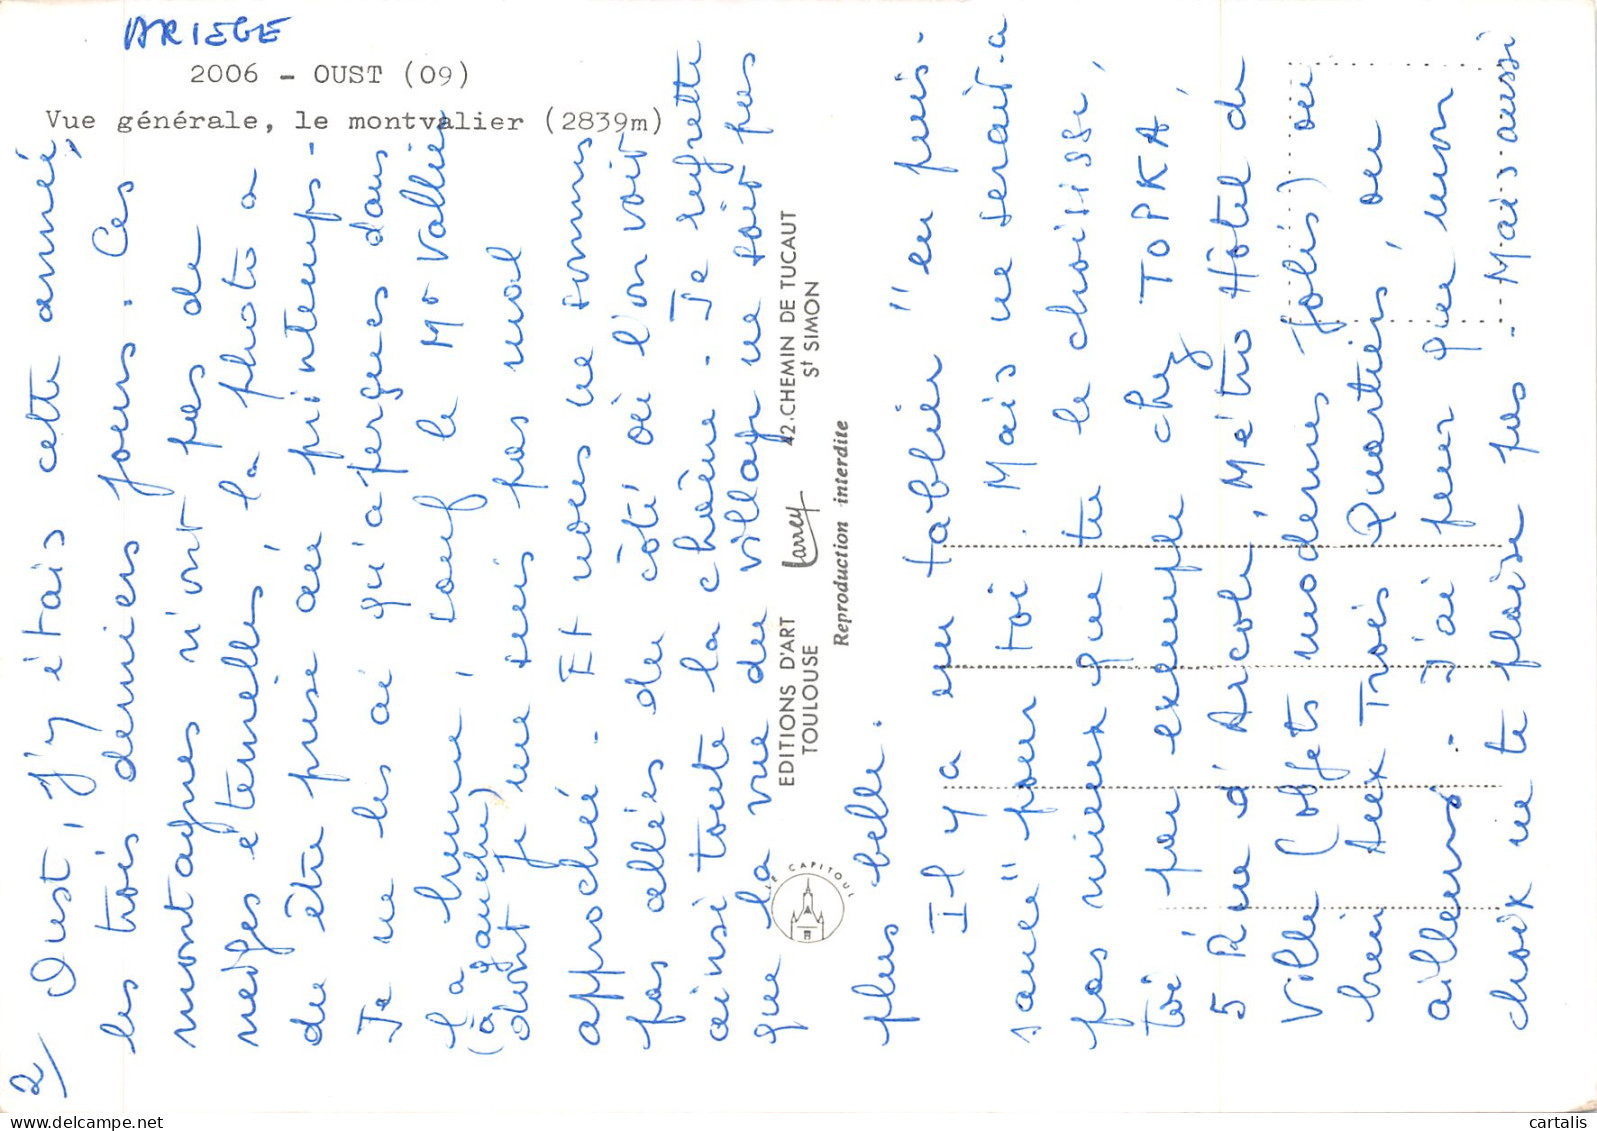 ARIEGE
2006 - OUST (09)
Vue générale, le montvalier (2839m)
2/ Oust, j'y étais cette année,
les trois derniers jours. Ces
montagnes n'ont pas de
neiges éternelles, la photo a
du être prise au printemps -
Je ne les ai qu'aperçues dans
la brume, sauf le Mt Vallier
(à gauche)
dont je me suis pas mal
approchée. Et nous ne sommes
pas allées du côté où l'on voit
ainsi toute la chaîne. Je regrette
que la vue du village ne soit pas
plus belle.
EDITIONS D'ART Larrey 42.CHEMIN DE TUCAUT
TOULOUSE St SIMON
Reproduction interdite
LE CAPITOUL
Il y a un tablier "en puis-
sance" pour toi. Mais ne serait-a
pas mieux que tu le choisisse,
toi par exemple chez TOPKA,
5 Rue d'Arcole, Métro Hôtel de
Ville (objets modernes jolis) ou
bien Aux Trois Quartiers, ou
ailleurs - J'ai peur que mon
choix ne te plaise pas - Mais aussi
cartalis